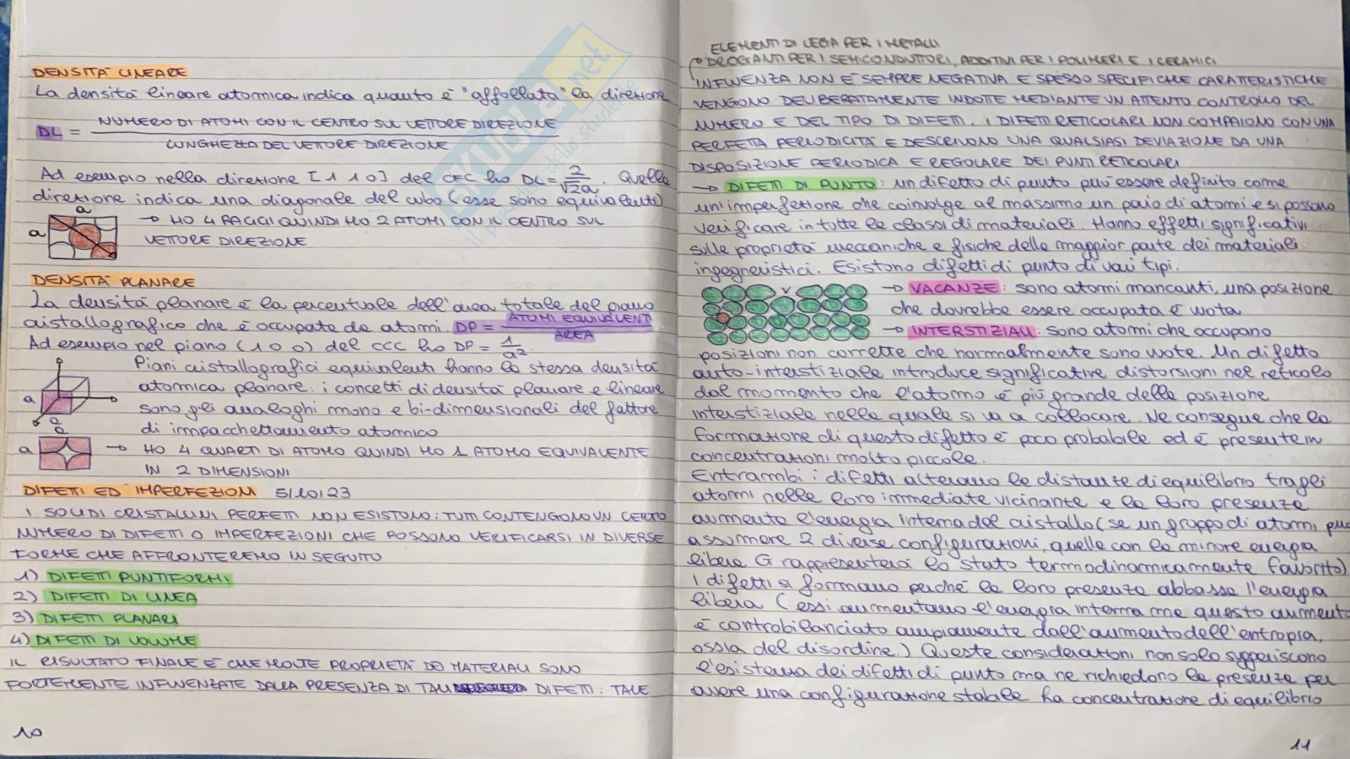 DENSITÀ LINEARE
La densità lineare atomica indica quanto è "affollata" la direzione
DL = NUMERO DI ATOMI CON IL CENTRO SUL VETTORE DIREZIONE
LUNGHEZZA DEL VETTORE DIREZIONE
Ad esempio nella direzione [1 1 0] del CFC ho DL = 2/√2a. Quella
direzione indica una diagonale del cubo (esse sono equivalenti)
a
a
→ HO 4 RAGGI QUINDI HO 2 ATOMI CON IL CENTRO SUL
VETTORE DIREZIONE
DENSITÀ PLANARE
La densità planare è la percentuale dell'area totale del piano
cristallografico che è occupata da atomi. DP = ATOMI EQUIVALENTI/AREA
Ad esempio nel piano (1 0 0) del CCC ho DP = 1/a²
Piani cristallografici equivalenti hanno la stessa densità
atomica planare. i concetti di densità planare e lineare
a
sono gli analoghi mono e bi-dimensionali del fattore
a
di impacchettamento atomico
a
a → HO 4 QUARTI DI ATOMO QUINDI HO 1 ATOMO EQUIVALENTE
IN 2 DIMENSIONI
DIFETTI ED IMPERFEZIONI 5/10/23
I SOLIDI CRISTALLINI PERFETTI NON ESISTONO: TUTTI CONTENGONO UN CERTO
NUMERO DI DIFETTI O IMPERFEZIONI CHE POSSONO VERIFICARSI IN DIVERSE
FORME CHE AFFRONTEREMO IN SEGUITO
1) DIFETTI PUNTIFORMI
2) DIFETTI DI LINEA
3) DIFETTI PLANARI
4) DIFETTI DI VOLUME
IL RISULTATO FINALE È CHE MOLTE PROPRIETÀ DEI MATERIALI SONO
FORTEMENTE INFLUENZATE DALLA PRESENZA DI TALI DIFETTI: TALE
10
ELEMENTI DI LEGA PER I METALLI
DROGANTI PER I SEMICONDUTTORI, ADDITIVI PER I POLIMERI E I CERAMICI
INFLUENZA NON È SEMPRE NEGATIVA E SPESSO SPECIFICHE CARATTERISTICHE
VENGONO DELIBERATAMENTE INDOTTE MEDIANTE UN ATTENTO CONTROLLO DEL
NUMERO E DEL TIPO DI DIFETTI. I DIFETTI RETICOLARI NON COMPAIONO CON UNA
PERFETTA PERIODICITÀ E DESCRIVONO UNA QUALSIASI DEVIAZIONE DA UNA
DISPOSIZIONE PERIODICA E REGOLARE DEI PUNTI RETICOLARI
→ DIFETTI DI PUNTO: un difetto di punto può essere definito come
un'imperfezione che coinvolge al massimo un paio di atomi e si possono
verificare in tutte le classi di materiali. Hanno effetti significativi
sulle proprietà meccaniche e fisiche della maggior parte dei materiali
ingegneristici. Esistono difetti di punto di vari tipi.
V
→ VACANZE: sono atomi mancanti, una posizione
che dovrebbe essere occupata è vuota
→ INTERSTIZIALI: sono atomi che occupano
posizioni non corrette che normalmente sono vuote. Un difetto
auto-interstiziale introduce significative distorsioni nel reticolo
dal momento che l'atomo è più grande della posizione
interstiziale nella quale si va a collocare. Ne consegue che la
formazione di questo difetto è poco probabile ed è presente in
concentrazioni molto piccole.
Entrambi i difetti alterano le distanze di equilibrio tra gli
atomi nelle loro immediate vicinanze e la loro presenza
aumenta l'energia interna del cristallo (se un gruppo di atomi può
assumere 2 diverse configurazioni, quella con la minore energia
libera G rappresenterà lo stato termodinamicamente favorito)
I difetti si formano perché la loro presenza abbassa l'energia
libera (essi aumentano l'energia interna ma questo aumento
è controbilanciato ampiamente dall'aumento dell'entropia,
ossia del disordine.) Queste considerazioni non solo suggeriscono
l'esistenza dei difetti di punto ma ne richiedono la presenza per
avere una configurazione stabile. La concentrazione di equilibrio
11
SKUOLA.net